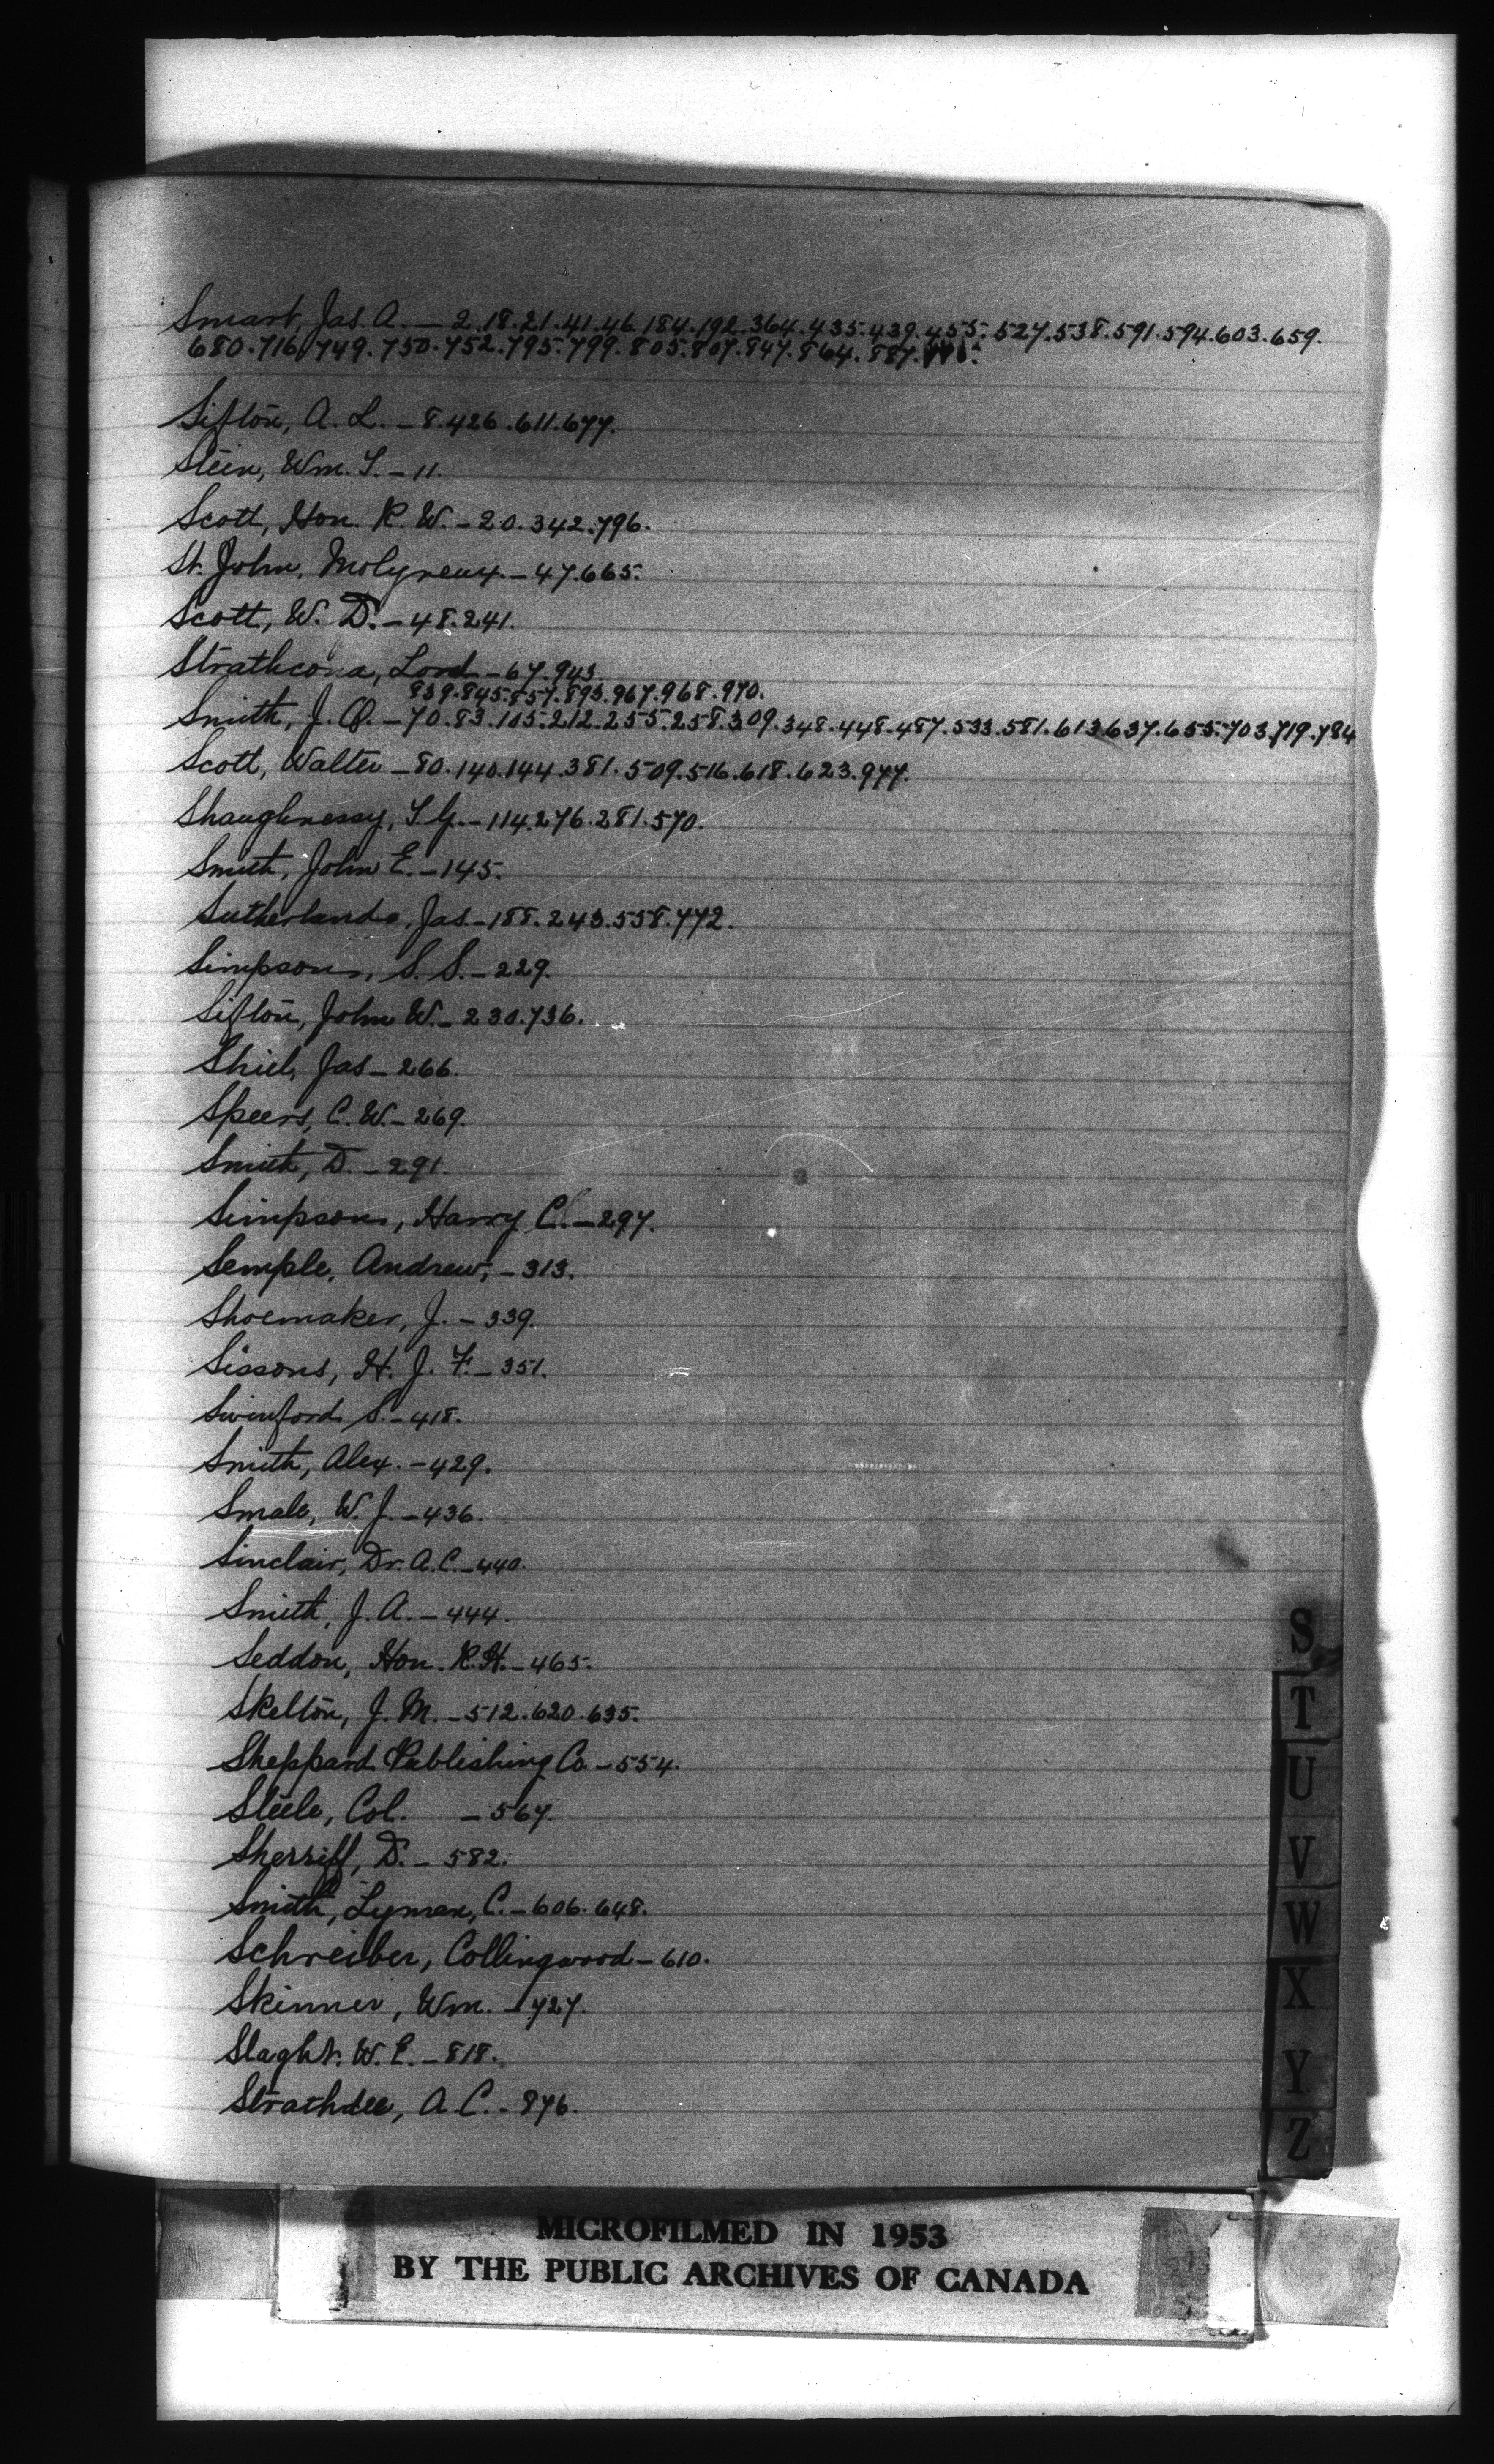 Smart, Jas. A. — 2.18.21.41.46.184.192.364.435.439.455.527.538.591.594.603.659.
680.716.749.750.752.795.799.805.807.847.864.887.
Sifton, A. L. — 8.426.611.677.
Stein, Wm. T. — 11.
Scott, Hon. R. W. — 20.342.796.
St. John, Molyneux. — 47.665.
Scott, W. D. — 48.241.
Strathcona, Lord — 67.943.
839.845.857.893.967.968.970.
Smith, J. O. — 70.83.105.212.255.258.309.348.448.487.533.581.613.637.655.703.719.784
Scott, Walter — 80.140.144.381.509.516.618.623.977.
Shaughnessy, T. G. — 114.276.281.570.
Smith, John E. — 145.
Sutherland, Jas. — 188.243.558.772.
Simpson, S. S. — 229.
Sifton, John W. — 230.736.
Shiel, Jas — 266.
Speers, C. W. — 269.
Smith, D. — 291.
Simpson, Harry C. — 297.
Semple, Andrew, — 313.
Shoemaker, J. — 339.
Sissons, H. J. F. — 351.
Swinford S. — 418.
Smith, Alex. — 429.
Smale, W. J. — 436.
Sinclair, Dr. A. C. — 440.
Smith, J. A. — 444.
Seddon, Hon. R. H. — 465.
Skelton, J. M. — 512.620.635.
Sheppard Publishing Co. — 554.
Steele, Col. — 567.
Sherriff, D. — 582.
Smith, Lyman, C. — 606.648.
Schreiber, Collingwood — 610.
Skinner, Wm. — 727.
Slaght. W. E. — 818.
Strathdee, A. C. — 876.
S
T
U
V
W
X
Y
Z
MICROFILMED IN 1953
BY THE PUBLIC ARCHIVES OF CANADA